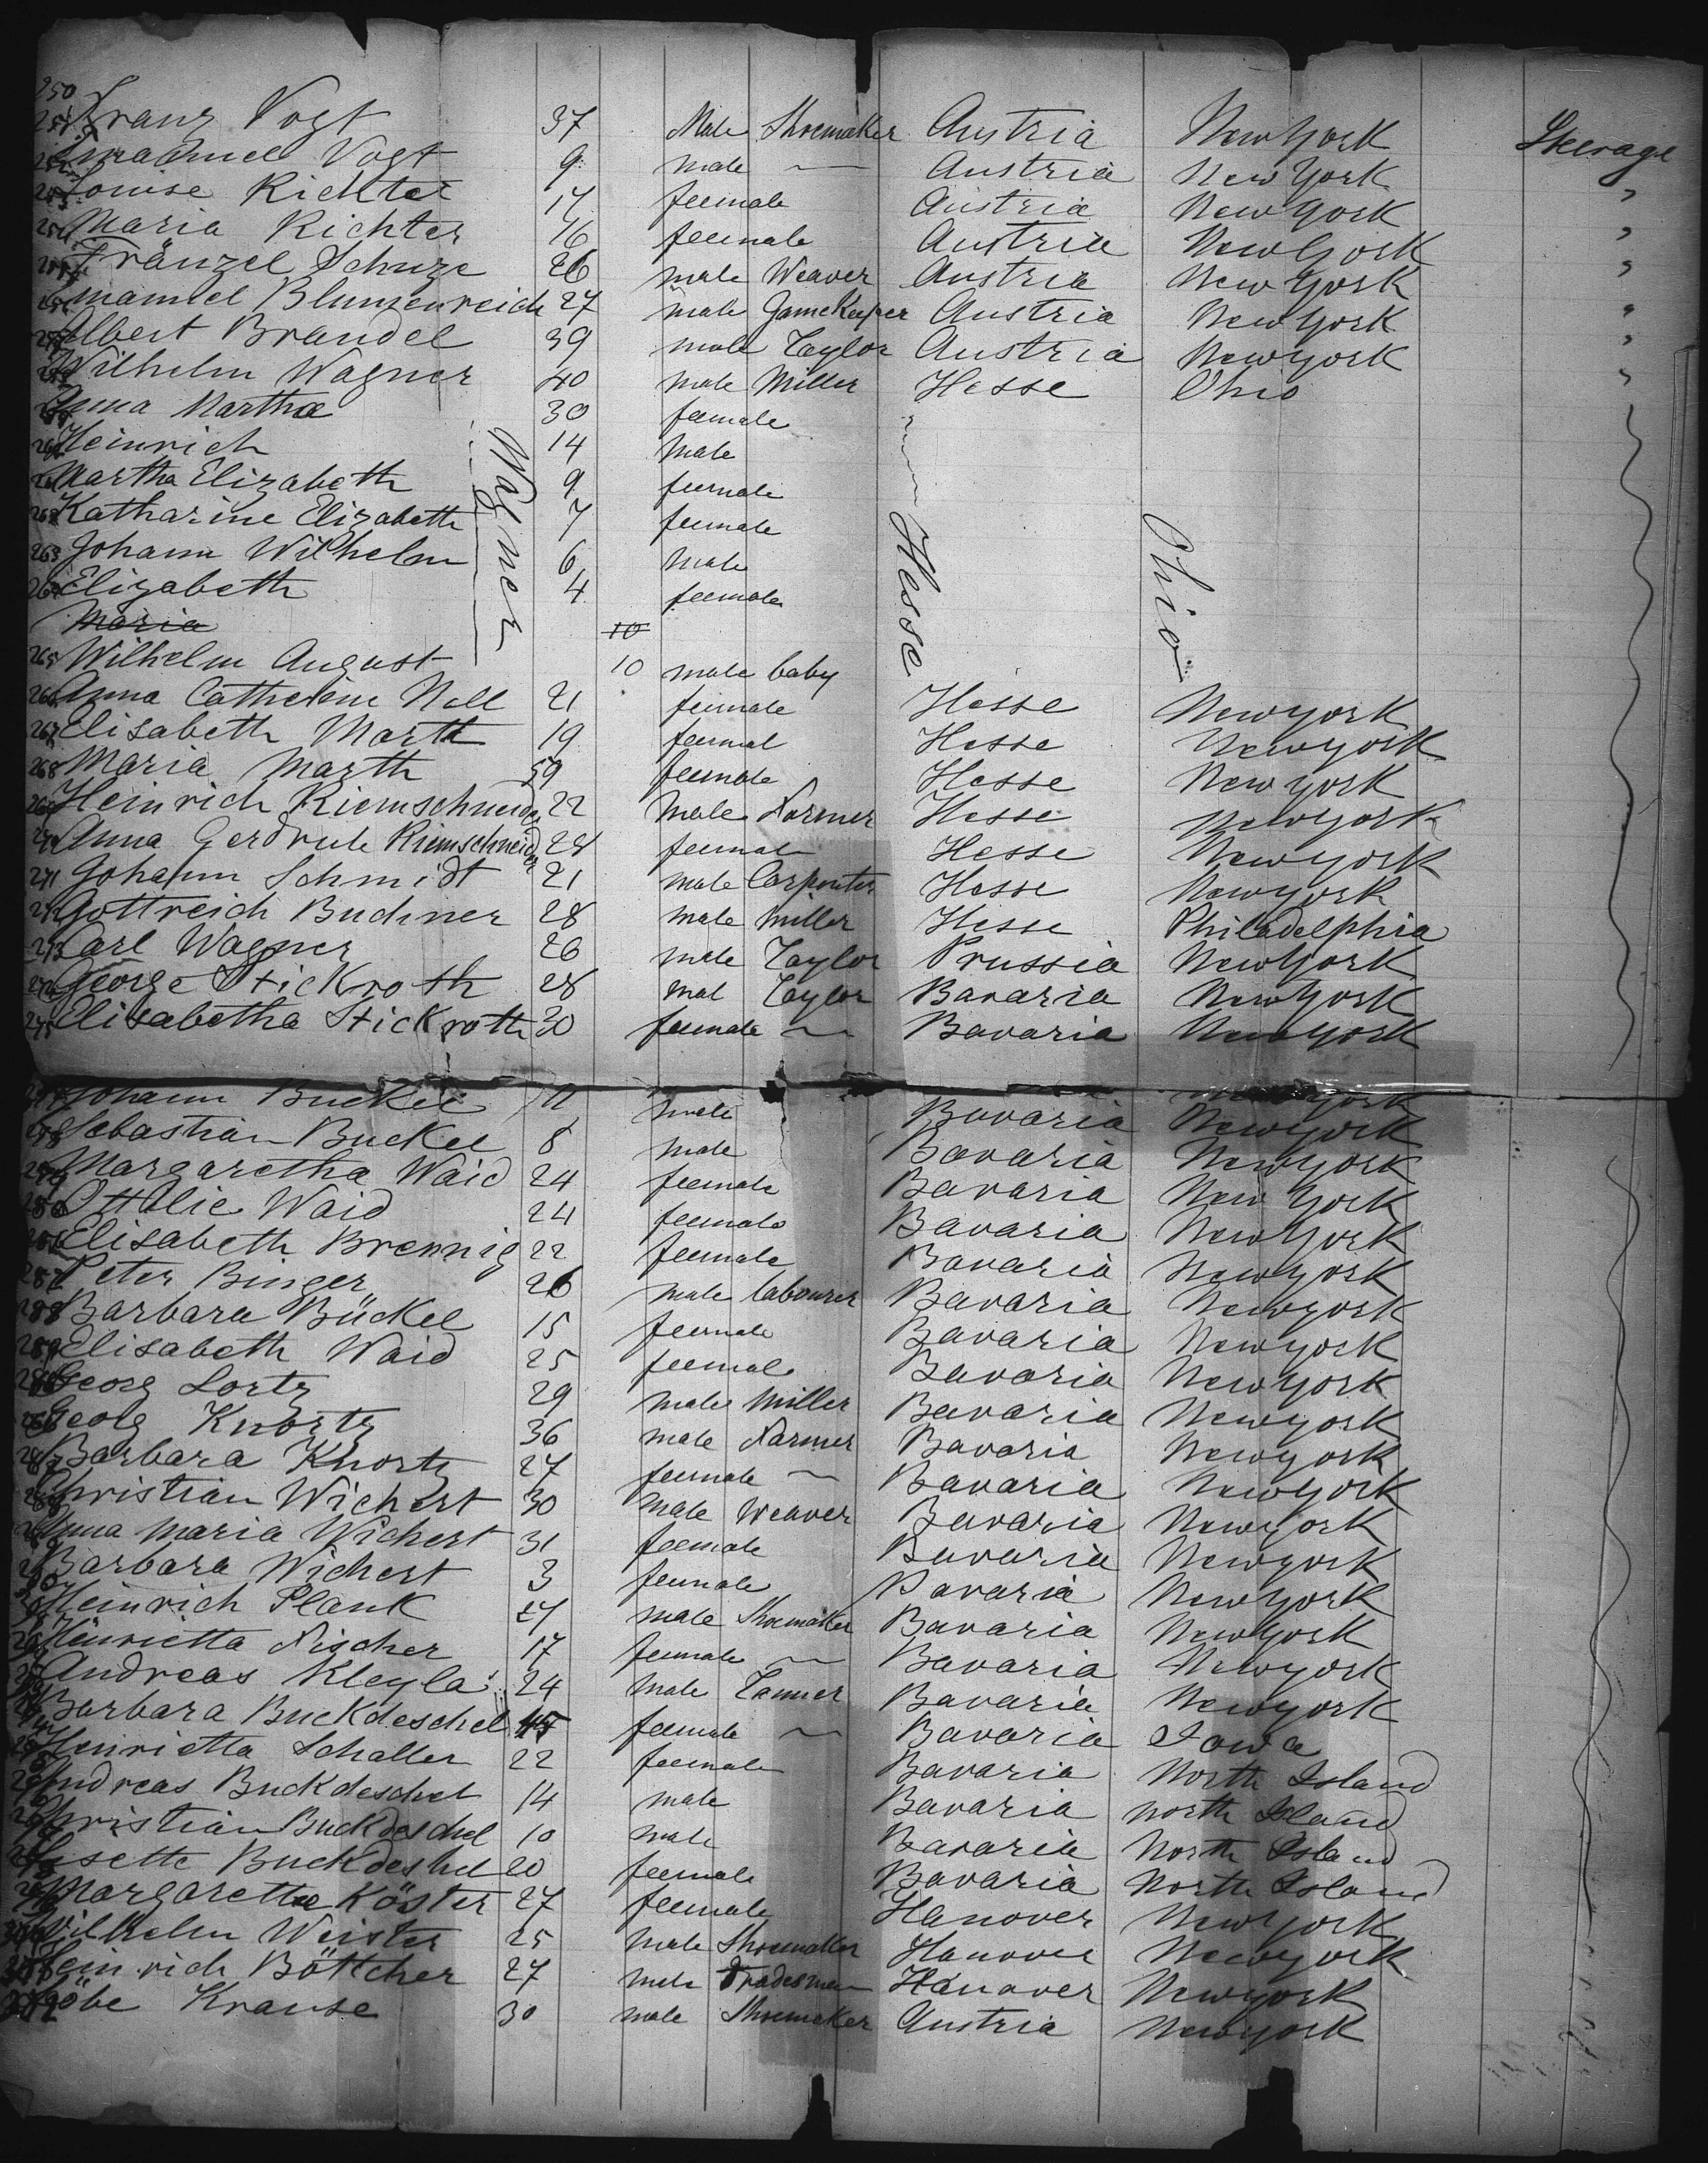 250
251 Franz Vogt 37 Male Shoemaker Austria New York Steerage
Emanuel Vogt 9 male — Austria New York "
253 Louise Richter 17 feemale Austria New York "
254 Maria Richter 16 feemale Austria New York "
Fränzel Schuze 26 male Weaver Austria New York "
Emanuel Blumenreich 27 male Gamekeeper Austria New York "
Albert Brandel 39 male Taylor Austria New york "
Wilhelm Wagner 40 male Miller Hesse Ohio
Anna Martha 30 feemale
Heinrich 14 Male
Martha Elizabeth 9 feemale
262 Katharine Elizabeth 7 feemale
263 Johann Wilhelm 6 Male
264 Elizabeth 4 feemale
Wagner Hesse Ohio
Maria 10
265 Wilhelm August 10 male baby
266 Anna Catherine Noll 21 feemale Hesse New york
267 Elisabeth Marth 19 feemal Hesse New york
268 Maria Marth 59 feemale Hesse New york
269 Heinrich Riemschneider 22 Male Farmer Hesse New york
270 Anna Gerdrute Riemschneider 28 feemale Hesse New york
271 Johann Schmidt 21 male Carpenter Hesse New york
272 Gottreich Buchner 28 male Miller Hesse Philadelphia
273 Carl Wagner 26 male Taylor Prussia New York
274 George Stickroth 28 mal Taylor Bavaria New York
275 Elisabetha Stickroth 30 feemale — Bavaria New York
New york
Johann Buckel 11 male Bavaria New york
Sebastian Buckel 8 male Bavaria New york
Margaretha Waid 24 feemale Bavaria New York
Ottolie Waid 24 feemale Bavaria New York
Elisabeth Brennig 22 feemale Bavaria New york
Peter Binger 26 male labourer Bavaria New york
Barbara Bückel 15 feemale Bavaria New york
Elisabeth Waid 25 feemale Bavaria New York
Georg Lortz 29 male Miller Bavaria New york
Georg Knortz 36 male Farmer Bavaria New york
Barbara Knortz 27 feemale — Bavaria New york
Christian Wichert 30 Male Weaver Bavaria New york
Anna Maria Wichert 31 feemale Bavaria New york
Barbara Wichert 3 feemale Bavaria New York
Heinrich Plank 27 male Shoemaker Bavaria New York
Henrietta Fischer 17 feemale — Bavaria New york
Andreas Kleyla 24 Male Tanner Bavaria New york
Barbara Buckdeschel 45 feemale — Bavaria Iowa
Henrietta Schaller 22 feemale Bavaria North Island
Andreas Buckdeschel 14 male Bavaria North Island
Christian Buckdeschel 10 male Bavaria North Island
Lisette Buckdeschel 20 feemale Bavaria North Island
Margarettha Köster 27 feemale Hanover New York
Wilhelm Weister 25 Male Shoemaker Hanover New york
Heinrich Böttcher 27 male Tradesman Hanover New york
Krause 30 male Shoemaker Austria New york